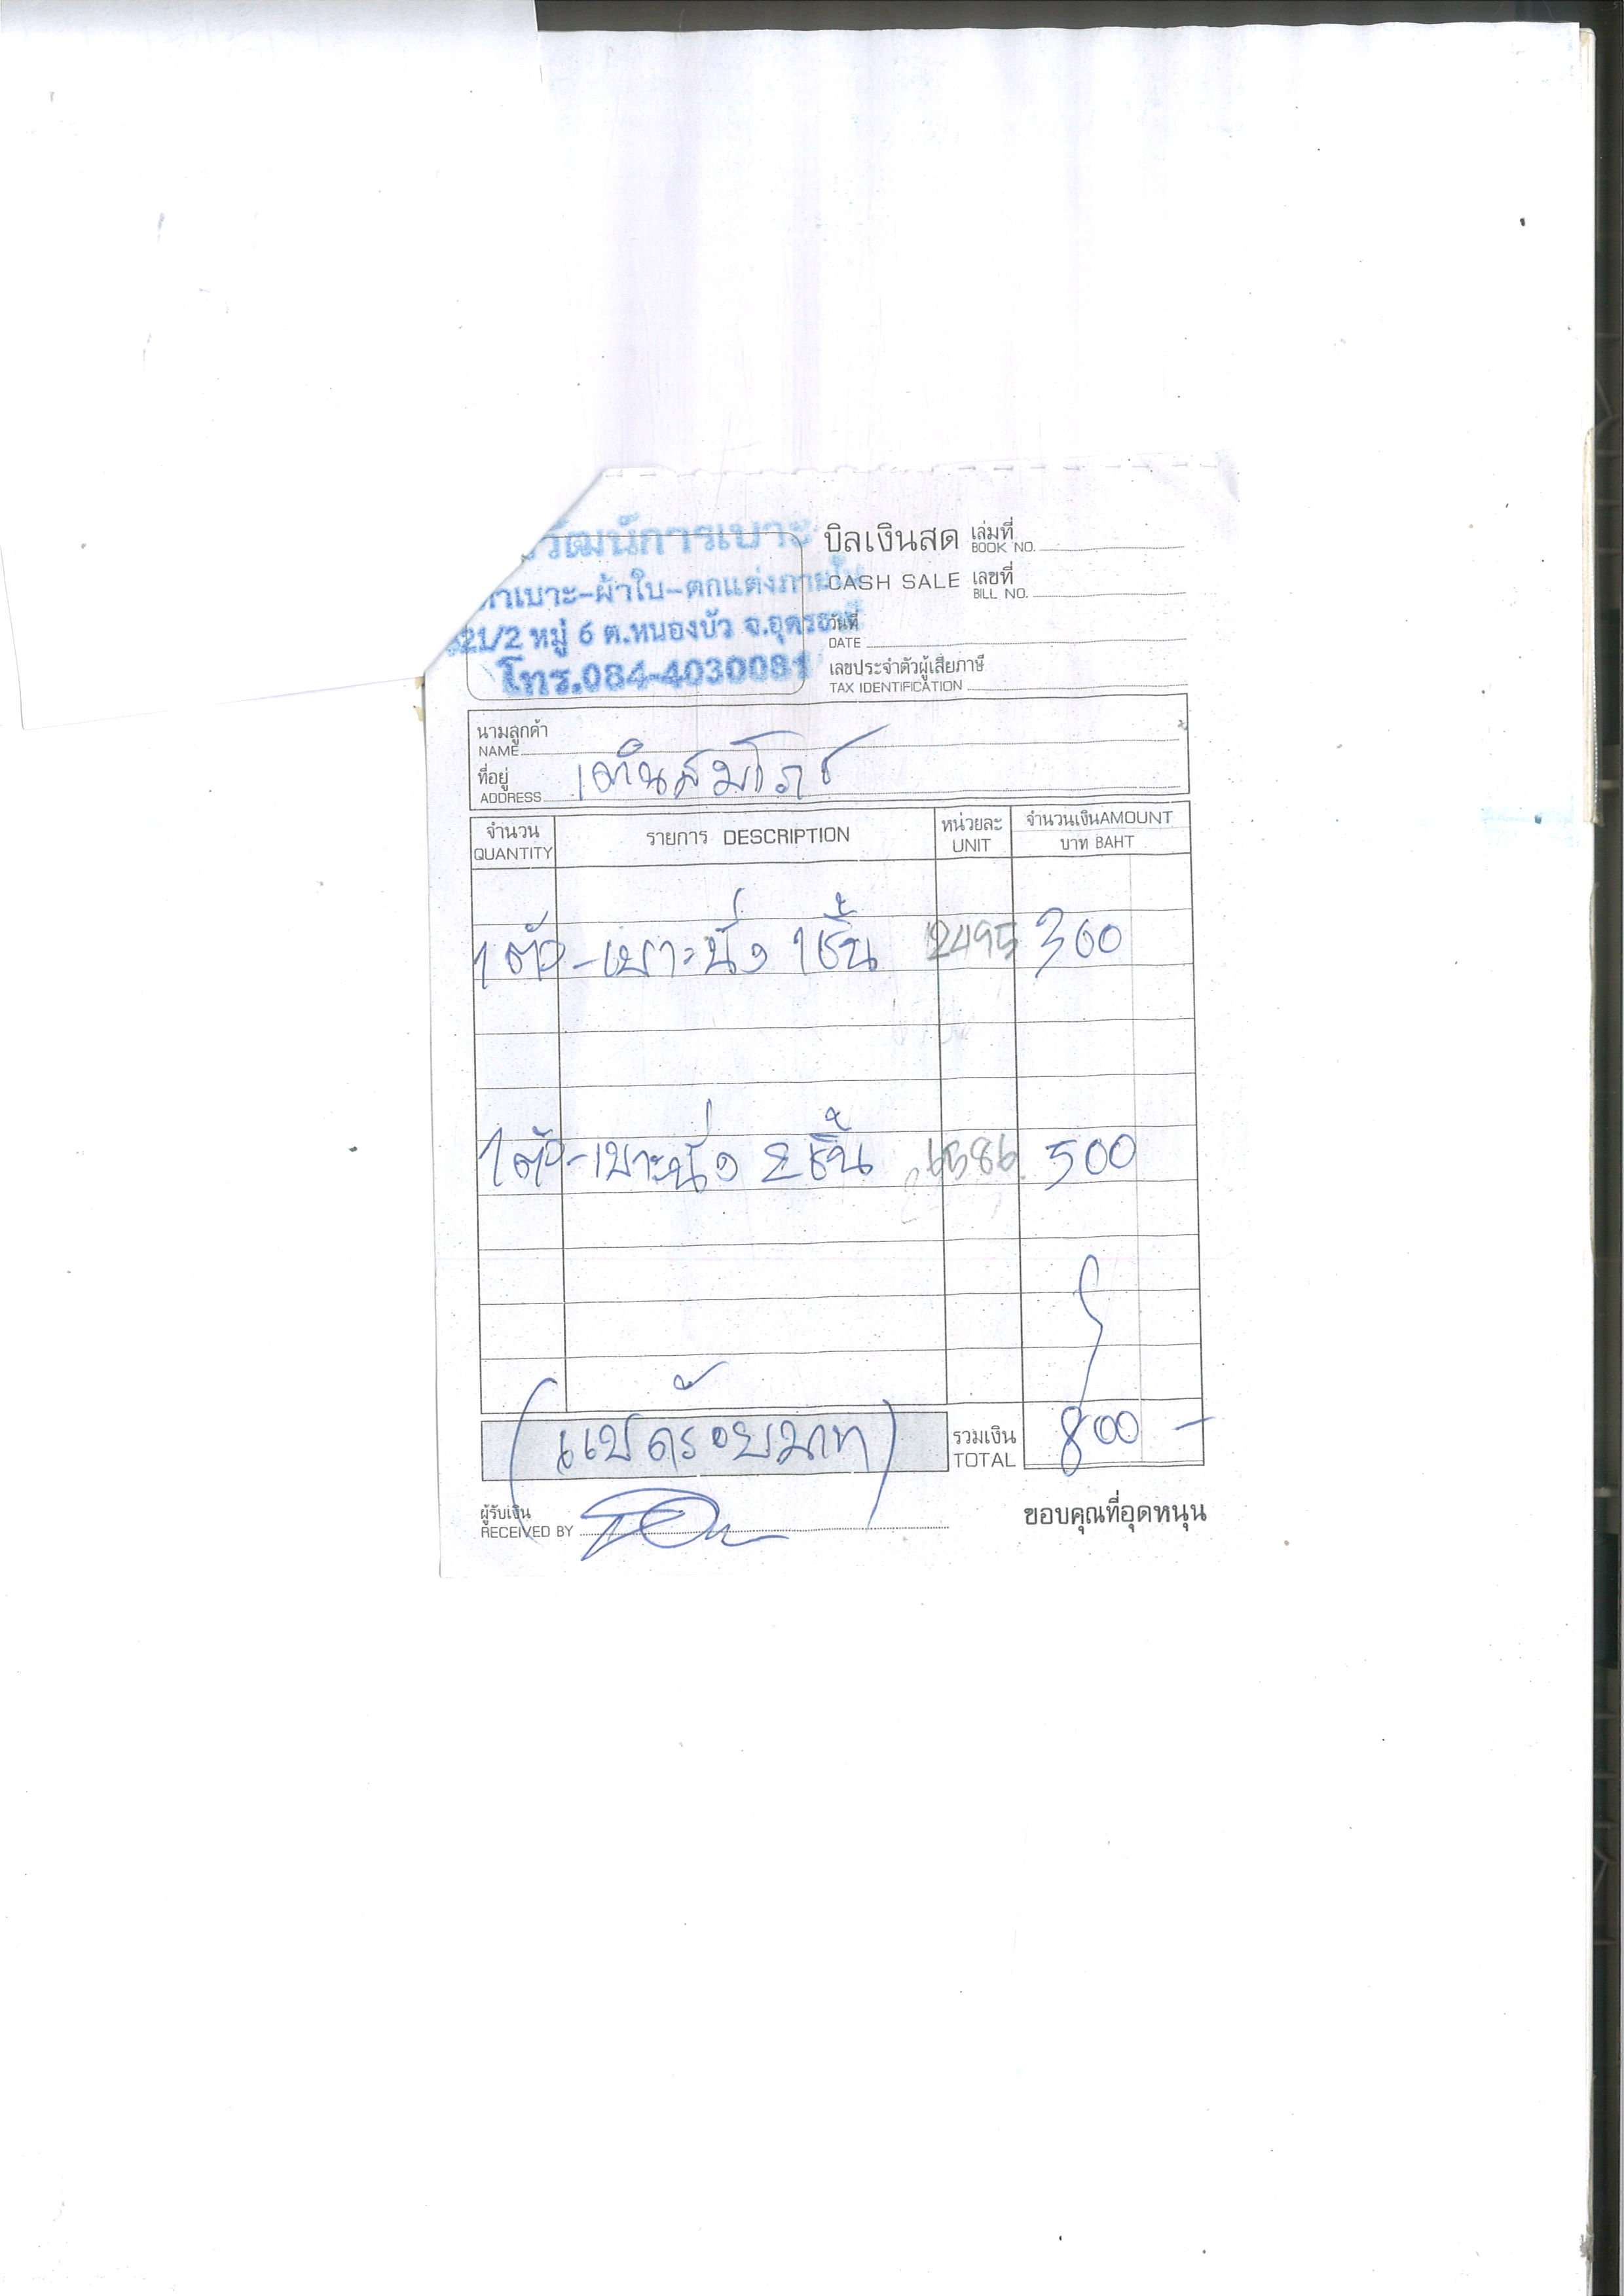 วัฒน์การเบาะ
ทำเบาะ-ผ้าใบ-ตกแต่งภายใน
21/2 หมู่ 6 ต.หนองบัว จ.อุดรธานี
โทร.084-4030081
บิลเงินสด เล่มที่
BOOK NO.
CASH SALE เลขที่
BILL NO.
วันที่
DATE
เลขประจำตัวผู้เสียภาษี
TAX IDENTIFICATION
นามลูกค้า
NAME
ที่อยู่
ADDRESS
เดินสมโภช
จำนวน รายการ DESCRIPTION หน่วยละ จำนวนเงินAMOUNT
QUANTITY UNIT บาท BAHT
1 ตัว - เบาะนั่ง 1 ชิ้น 2495 300
1 ตัว - เบาะนั่ง 2 ชิ้น 6586 500
(แปดร้อยบาท) รวมเงิน 800 -
TOTAL
ผู้รับเงิน
RECEIVED BY
ขอบคุณที่อุดหนุน